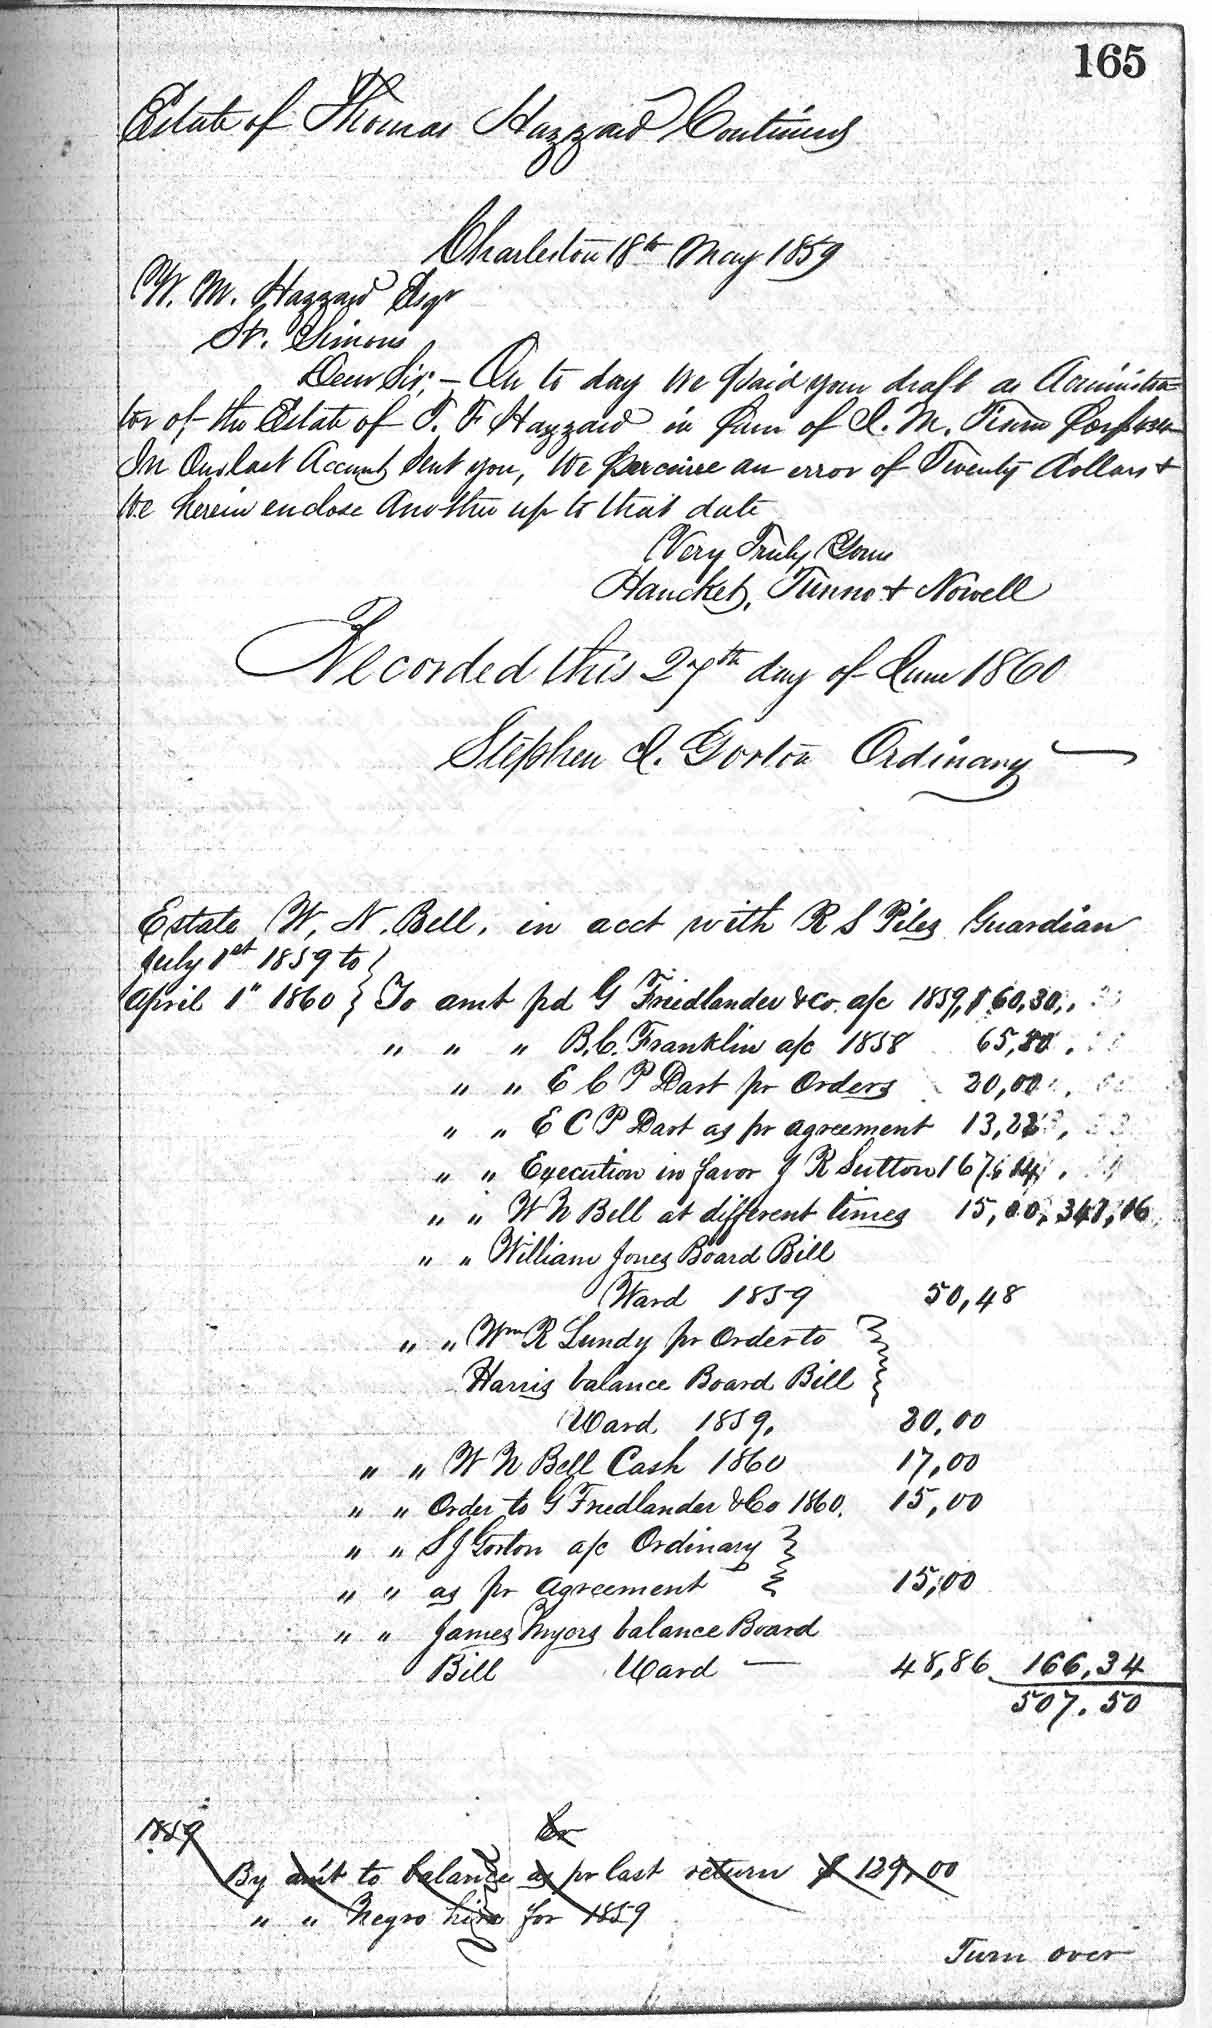 165
Estate of Thomas Hazzard Continued
Charleston 18th May 1859
W. M. Hazzard Esqr
St. Simons
Dear Sir; – On to day we paid your draft as Administra-
tor of the Estate of T. F Hazzard in favor of I. M. Tison for
In Our last Account, Sent you, We perceive an error of Twenty dollars &
We herein enclose Another up to that date
Very Truly Yours
Hanckel, Tunno & Nowell
Recorded this 27th day of June 1860
Stephen J. Gorton Ordinary
Estate W, N. Bell, in acct with R S Piles Guardian
July 1st 1859 to }
April 1" 1860 } To amt pd G Friedlander & Co. a/c 1859, $ 60,30,
" " " B. C. Franklin a/c 1858 65,80
" " E C P Dart pr Orders 20,00
" " E C P Dart as pr agreement 13,22
" " Execution in favor J R Sutton 167,
" " W N Bell at different times 15,00, 34,16
" " William Jones Board Bill
Ward 1859 50,48
" " Wm R Lundy pr Order to }
Harris balance Board Bill }
Ward 1859, 20,00
" " W N Bell Cash 1860 17,00
" " Order to G Friedlander & Co 1860. 15,00
" " S J Gorton a/c Ordinary }
" " as pr Agreement } 15,00
" " James Myers balance Board
Bill Ward — 48,86 166,34
507.50
1859 Cr
By am't to balance as pr last return $ 129,00
" " Negro hire for 1859
Turn over